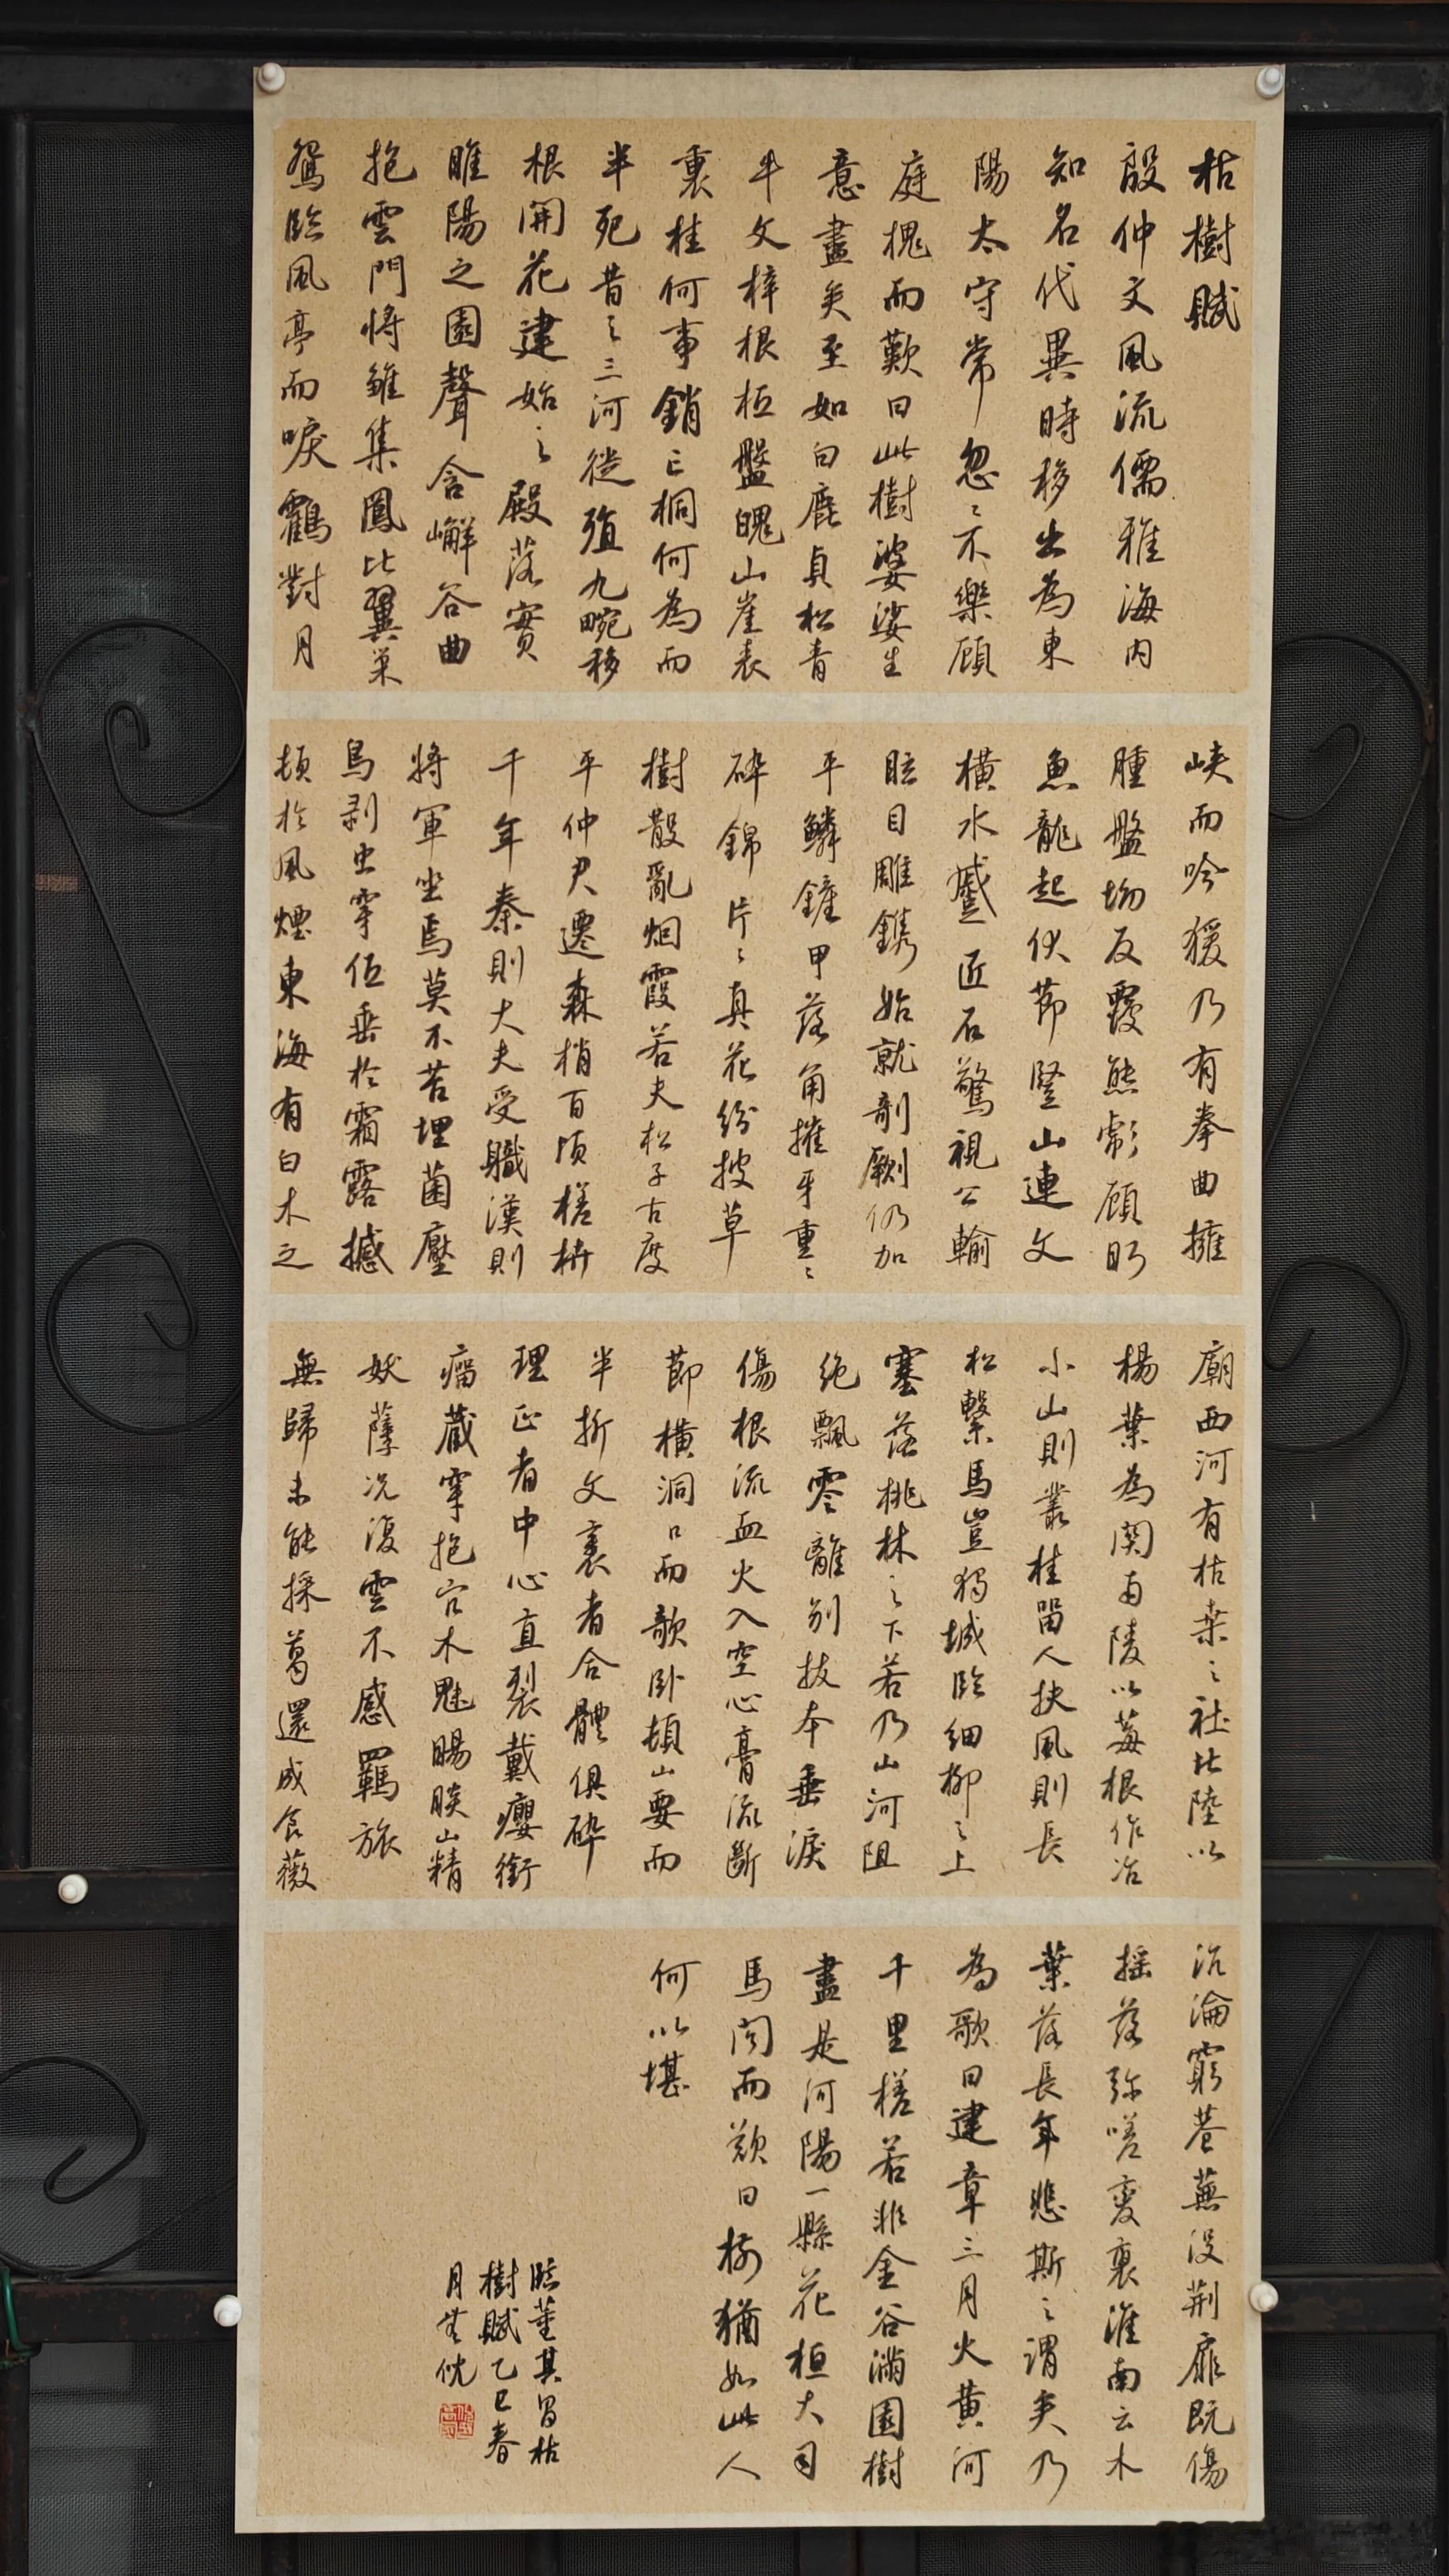 枯樹賦
殷仲文風流儒雅海内
知名代異時移出為東
陽太守常忽〻不樂顧
庭槐而歎曰此樹婆娑生
意盡矣至如白鹿貞松青
牛文梓根柢盤魄山崖表
裏桂何事銷亡桐何為而
半死昔之三河徙殖九畹移
根開花建始之殿落實
睢陽之園聲含嶰谷曲
抱雲門將雛集鳳比翼巢
鴛臨風亭而唳鶴對月
峽而吟猨乃有拳曲擁
腫盤坳反覆熊彪顧盼
魚龍起伏節豎山連文
橫水蹙匠石驚視公輸
眩目雕鐫始就剞劂仍加
平鱗鏟甲落角摧牙重〻
碎錦片〻真花紛披草
樹散亂烟霞若夫松子古度
平仲君遷森梢百頃槎枿
千年秦則大夫受職漢則
將軍坐焉莫不苔埋菌壓
鳥剥虫穿低垂於霜露撼
頓於風煙東海有白木之
廟西河有枯桒之社北陸以
楊葉為関南陵以莓根作冶
小山則叢桂留人扶風則長
松繫馬豈獨城臨細柳之上
塞落桃林之下若乃山河阻
絶飄零離别拔本垂淚
傷根流血火入空心膏流斷
節橫洞口而欹卧頓山要而
半折文衺者合體俱碎
理正者中心直裂戴癭銜
瘤藏穿抱穴木魅睗睒山精
妖孽况復雲不感羈旅
無歸未能採葛還成食薇
沉淪窮巷蕪没荆扉既傷
摇落弥嗟變衰淮南云木
葉落長年悲斯之謂矣乃
為歌曰建章三月火黄河
千里槎若非金谷滿園樹
盡是河陽一縣花桓大司
馬聞而歎曰樹猶如此人
何以堪
臨董其昌枯
樹賦乙巳春
月